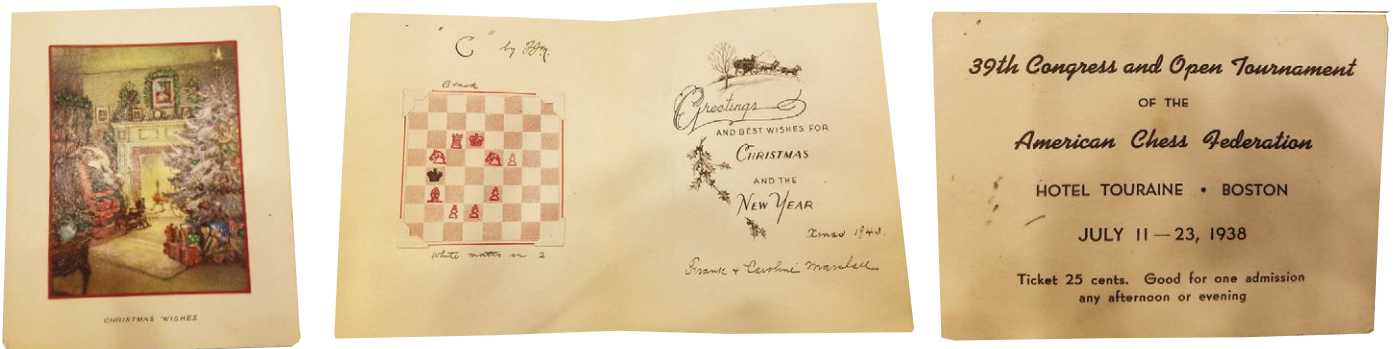 CHRISTMAS WISHES
"C" by FJM.
Black
White mates in 2
Greetings
AND BEST WISHES FOR
CHRISTMAS
AND THE
NEW YEAR
Xmas 1943.
Frank & Caroline Marshall
39th Congress and Open Tournament
OF THE
American Chess Federation
HOTEL TOURAINE • BOSTON
JULY 11—23, 1938
Ticket 25 cents. Good for one admission
any afternoon or evening